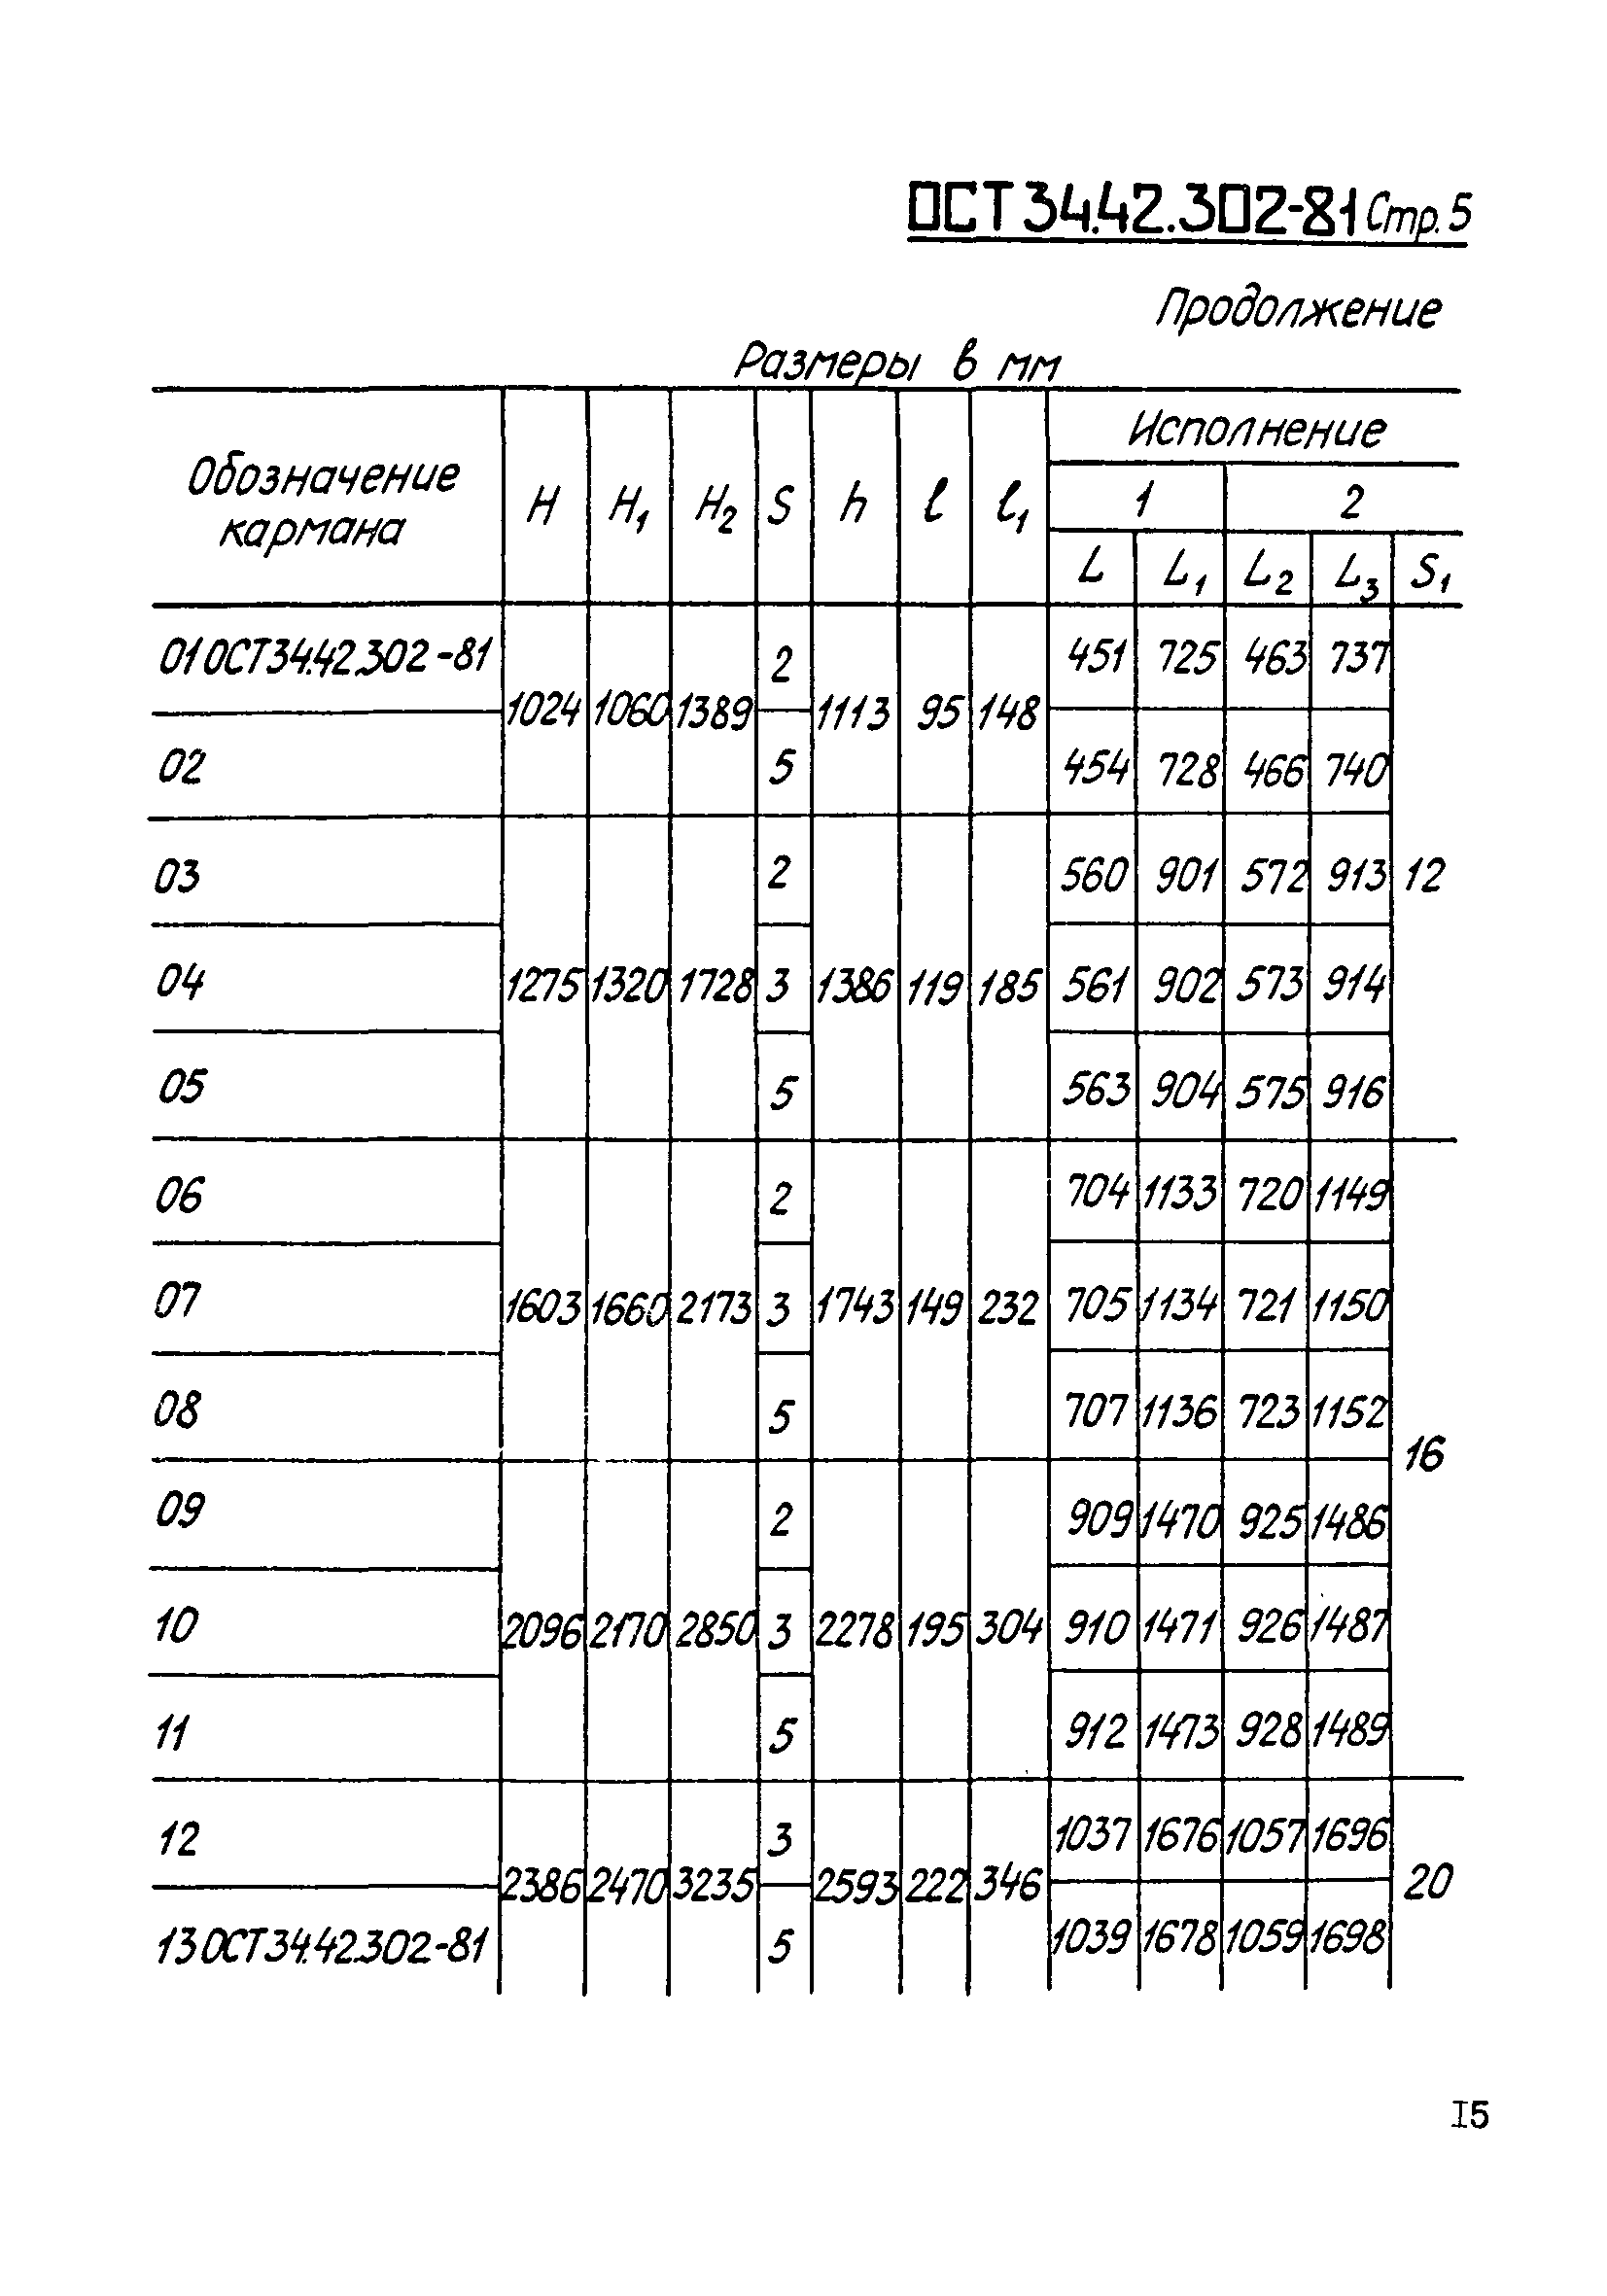 ОСТ 34.42.302-81 Стр. 5
Продолжение
Размеры в мм
Обозначение кармана H H1 H2 S h ℓ ℓ1 Исполнение
1 2
L L1 L2 L3 S1
01 ОСТ 34.42.302-81 2 451 725 463 737
1024 1060 1389 1113 95 148
02 5 454 728 466 740
03 2 560 901 572 913 12
04 1275 1320 1728 3 1386 119 185 561 902 573 914
05 5 563 904 575 916
06 2 704 1133 720 1149
07 1603 1660 2173 3 1743 149 232 705 1134 721 1150
08 5 707 1136 723 1152
16
09 2 909 1470 925 1486
10 2096 2170 2850 3 2278 195 304 910 1471 926 1487
11 5 912 1473 928 1489
12 3 1037 1676 1057 1696
2386 2470 3235 2593 222 346 20
13 ОСТ 34.42.302-81 5 1039 1678 1059 1698
I5